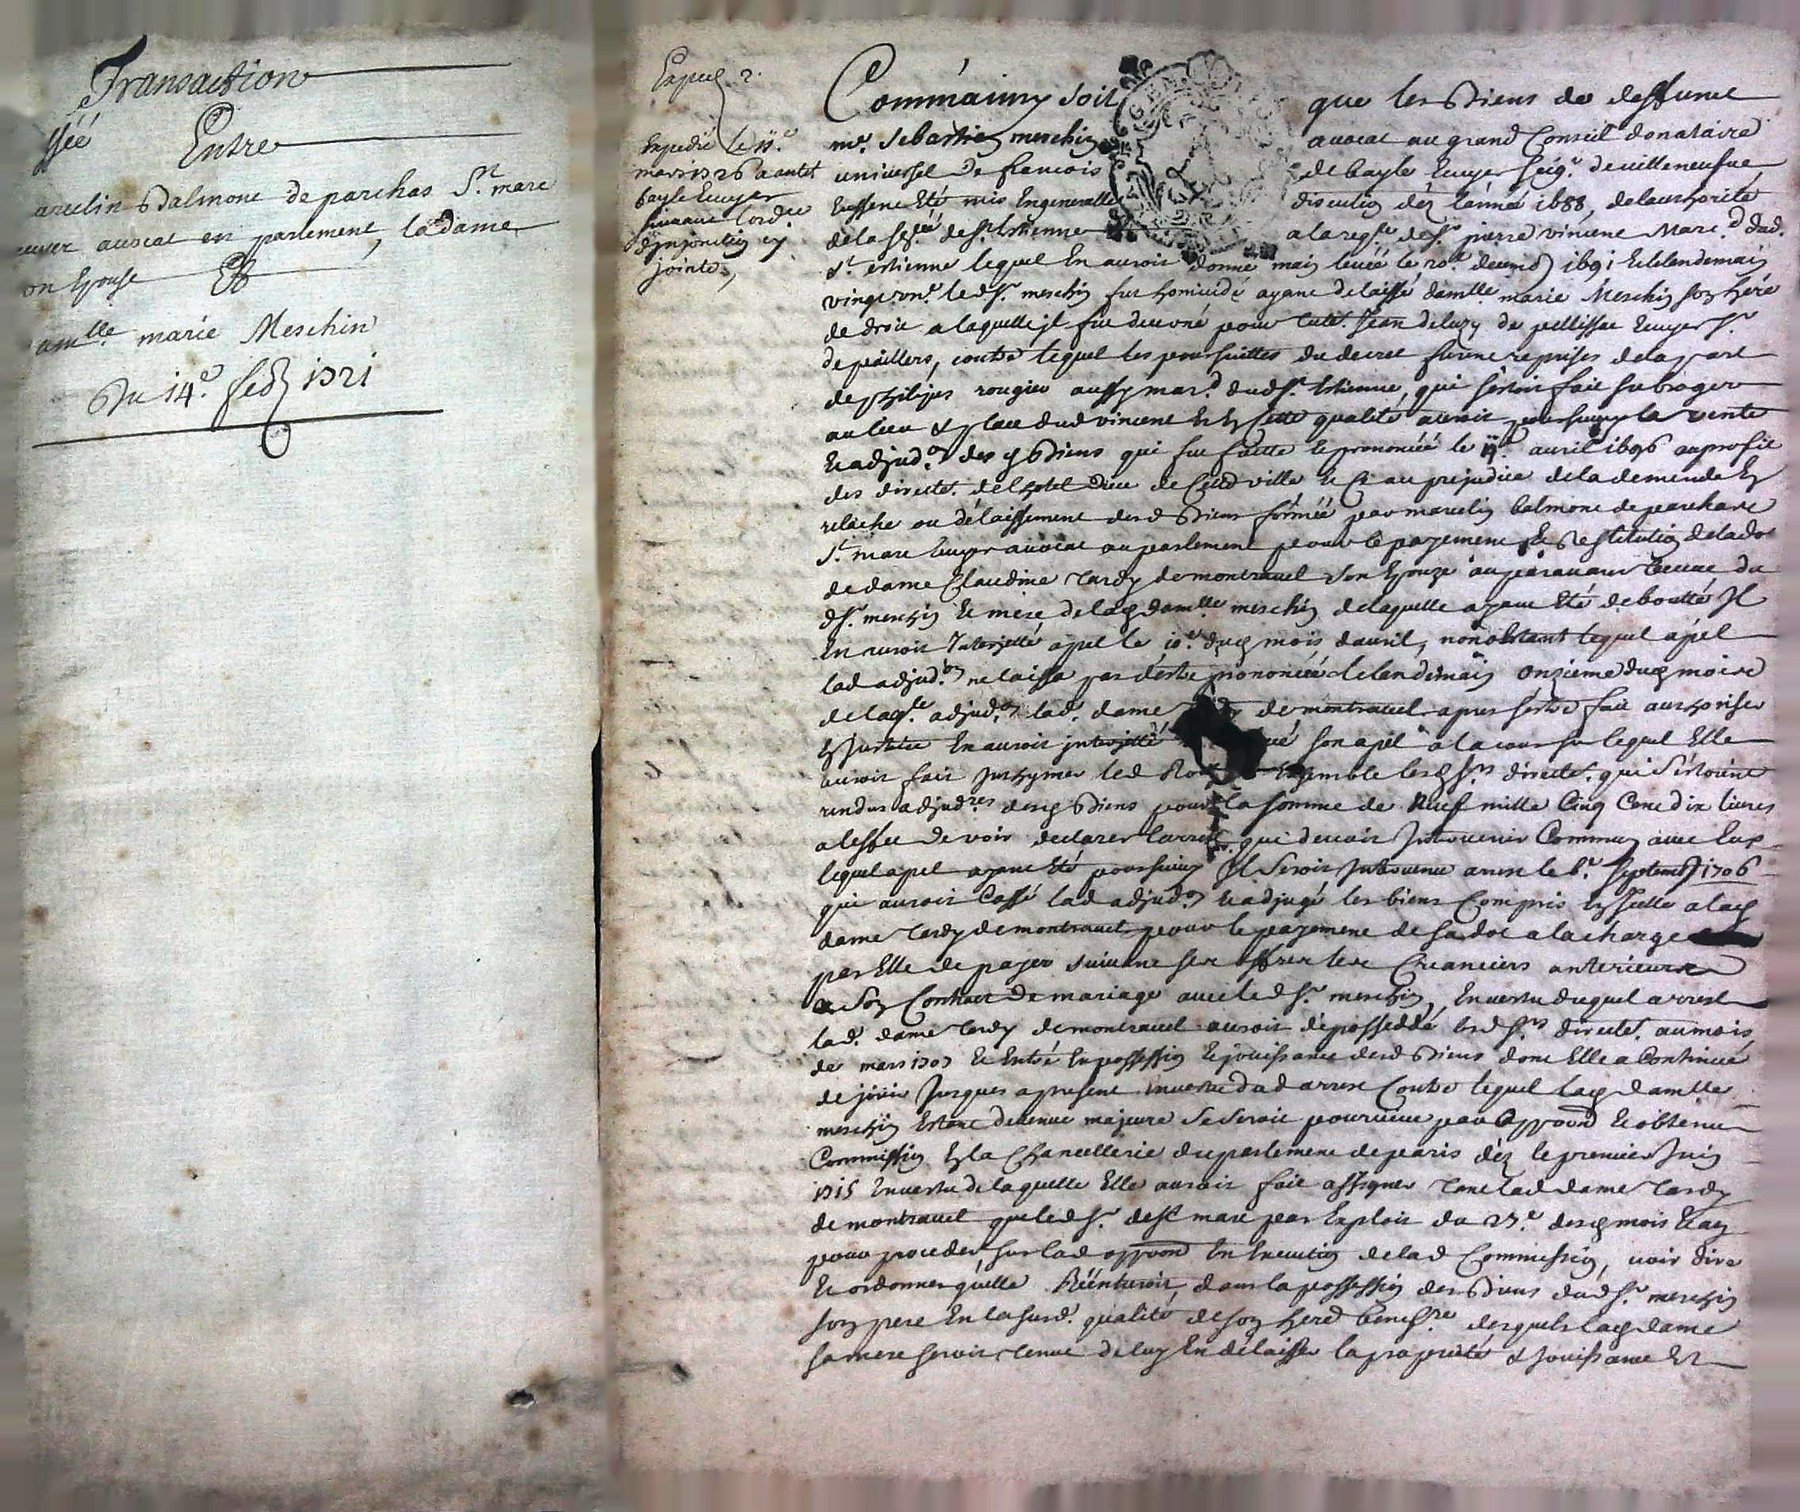 Transaction
ssée Entre
arcelin Balmont de parchas Sr. marc
cuyer avocat en parlement, la dame
on Epouse Et
amlle. marie Meschin
Du 14e. feb 1721
Expedié le 11e.
mars 1726 a antt
bayle Ecuyer
suivant lordce
d'injonction cy
jointe,
Comm'ainsy soit que les Biens de deffunct
me. Sebastien meschin avocat au grand Conseil donataire
universel de francois de bayle Ecuyer seigr. de villeneufve
Eussent Eté mis En generalle discution déz l'année 1688, de lauthorité
de la Sée de St. Estienne a la reqte. de Sr. pierre vincent Marc.d dud.
St. estienne lequel En auroit donné main levée le 20e. decemb 1691 Et le lendemain
vingt un.e led Sr. meschin fut homicidé ayant delaissé damlle. marie Meschin son heré
de droit a laquelle jl fut decerné pour tutr. Jean de luzy de pellissac Ecuyer Sr.
de paillers, contre lequel les poursuittes du decret furent reprises de la part
de philipes rougier aussy mar.d dud Sr. Estienne, qui s'estoit fait subroger
au lieu & place dud vincent Et En Cette qualité auroit poursuivy la vente
Et adjud.on des q Biens qui fut faitte Et prononcée le 11e. avril 1696 au profit
des direct.rs de l'hotel Dieu de Cette ville Et Ce au prejudice de la demende En
relache ou délaissement desd Biens formée par marcelin balmont de parchas
St. marc Ecuyer avocat au parlement pour le payement Et restitution de la dot
de dame Claudine tardy de montravel son Epouze auparavant veuve du
d Sr. meschin Et mere de laq damlle. meschin de laquelle ayant Eté deboutté Il
En auroit Interjetté apel le 10e. duq mois davril, nonobstant lequel apel
lad adjud.on ne laissa pas d'estre prononcée le lendemain onzieme duq mois
de laq.le adjud.on lad. dame de montravel apres s'estre fait authoriser
En Justice En auroit interjetté son apel a la cour sur lequel Elle
auroit fait Inthymer led Ensemble lesq Srs direct.rs qui s'estoint
rendus adjud.res desq Biens pour la somme de Neuf mille Cinq Cent dix livres
a leffet de voir declarer l'arrest qui devoit Intervenir Commun avec Eux
lequel apel ayant Eté poursuivy Il seroit Intervenu arrest le 6e. septemb 1706
qui auroit Cassé lad adjud.on Et adjugé les biens Compris En Icelle a laq
dame tardy de montravel pour le payement de sa dot a la charge
par Elle de payer suivant ses offres les Creanciers anterieurs
a Son Contract de mariage avec led Sr. meschin, En vertu duquel arrest
lad. dame tardy de montravel auroit dépossedé lesd Srs direct.rs au mois
de mars 1707 Et Entré En possession Et jouissance desd Biens dont Elle a Continué
de jouir Jusques a present En vertu dud arrest Contre lequel laq damlle
meschin Estant devenue majeure se seroit pourveue par oppoon Et obtenu
Commission En la Chancellerie du parlement de paris déz le premier Juin
1715 En vertu de laquelle Elle auroit fait assigner tant lad dame tardy
de montravel que led Sr. de St marc par Exploit du 27e. desq mois Et an
pour proceder sur lad oppoon En Execution de lad Commission, voir dire
Et ordonner qu'elle Rentreroit dans la possession des Biens dud Sr. meschin
son pere En la susd. qualité de son hered benef.re desquels laq dame
sa mere seroit tenue de luy En délaisser la proprieté & Jouissance Et